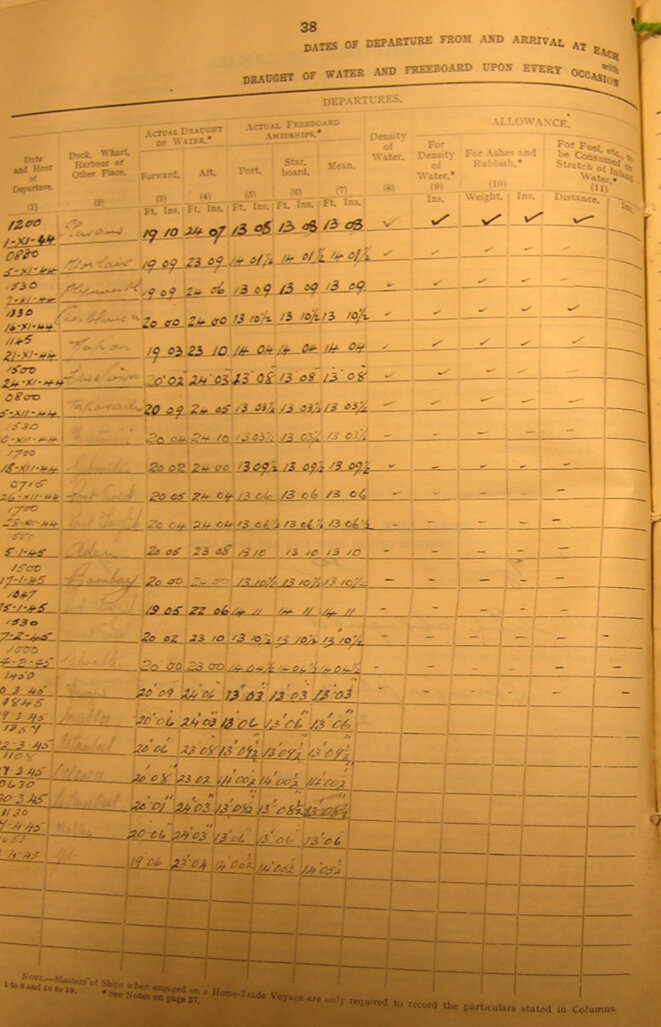 38
DATES OF DEPARTURE FROM AND ARRIVAL AT EACH
with
DRAUGHT OF WATER AND FREEBOARD UPON EVERY OCCASION
DEPARTURES.
Date and Hour of Departure. Dock, Wharf, Harbour or Other Place. ACTUAL DRAUGHT OF WATER.* ACTUAL FREEBOARD AMIDSHIPS.* Density of Water. ALLOWANCE.
Forward. Aft. Port. Starboard. Mean. For Density of Water.* For Ashes and Rubbish.* For Fuel, etc., to be Consumed on Stretch of Inland Water.*
(1) (2) (3) (4) (5) (6) (7) (8) (9) (10) (11)
Ft. Ins. Ft. Ins. Ft. Ins. Ft. Ins. Ft. Ins. Ins. Weight. Ins. Distance. Ins.
1200
1-XI-44 19 10 24 07 13 08 13 08 13 08 ✓ ✓ ✓ ✓ ✓
0800
5-XI-44 19 09 23 09 14 01½ 14 01½ 14 01½ ✓ ✓ ✓ ✓ ✓
1530
7-XI-44 19 09 24 06 13 09 13 09 13 09 ✓ ✓ ✓ ✓ ✓
1330
16-XI-44 Casablanca 20 00 24 00 13 10½ 13 10½ 13 10½ ✓ ✓ ✓ ✓ ✓
1145
21-XI-44 19 03 23 10 14 04 14 04 14 04 ✓ ✓ ✓ ✓ ✓
1500
24-XI-44 Freetown 20 02 24 03 13 08 13 08 13 08 ✓ ✓ ✓ ✓ ✓
0800
5-XII-44 Takoradi 20 09 24 05 13 03½ 13 03½ 13 03½ ✓ ✓ ✓ ✓ ✓
1530
0-XII-44 20 04 24 10 13 03½ 13 03½ 13 03½
1700
18-XII-44 20 02 24 00 13 09½ 13 09½ 13 09½
0715
26-XII-44 Port Said 20 05 24 04 13 06 13 06 13 06
1700
20 04 24 04 13 06½ 13 06½ 13 06½
5-1-45 Aden 20 05 23 08 13 10 13 10 13 10
1500
17-1-45 Bombay 20 00 24 00 13 10½ 13 10½ 13 10½
1047
5-1-45 19 05 22 06 14 11 14 11 14 11
1530
7-2-45 20 02 23 10 13 10½ 13 10½ 13 10½
1000
4-2-45 20 00 23 00 14 04½ 14 04½ 14 04½
1450
0 3.45 20'09 24'06 13'03 13'03 13'03
0845
9 3.45 Malta 20'06 24'03 13'06 13'06 13'06
2 3.45 Istanbul 20'06 23 08 13'09½ 13'09½ 13'09½
1108
7 3.45 20'08 23 02 14'00½ 14'00½ 14'00½
0630
30.3.45 Istanbul 20'01 24'03 13'08½ 13'08½ 13'08½
1130
-4.45 Malta 20'06 24'03 13'06 13'06 13'06
-4-45 Gib 19 06 23'04 14'05½ 14'05½ 14'05½
NOTE.—Masters of Ships when engaged on a Home-Trade Voyage are only required to record the particulars stated in Columns
1 to 8 and 16 to 19. * See Notes on page 37.